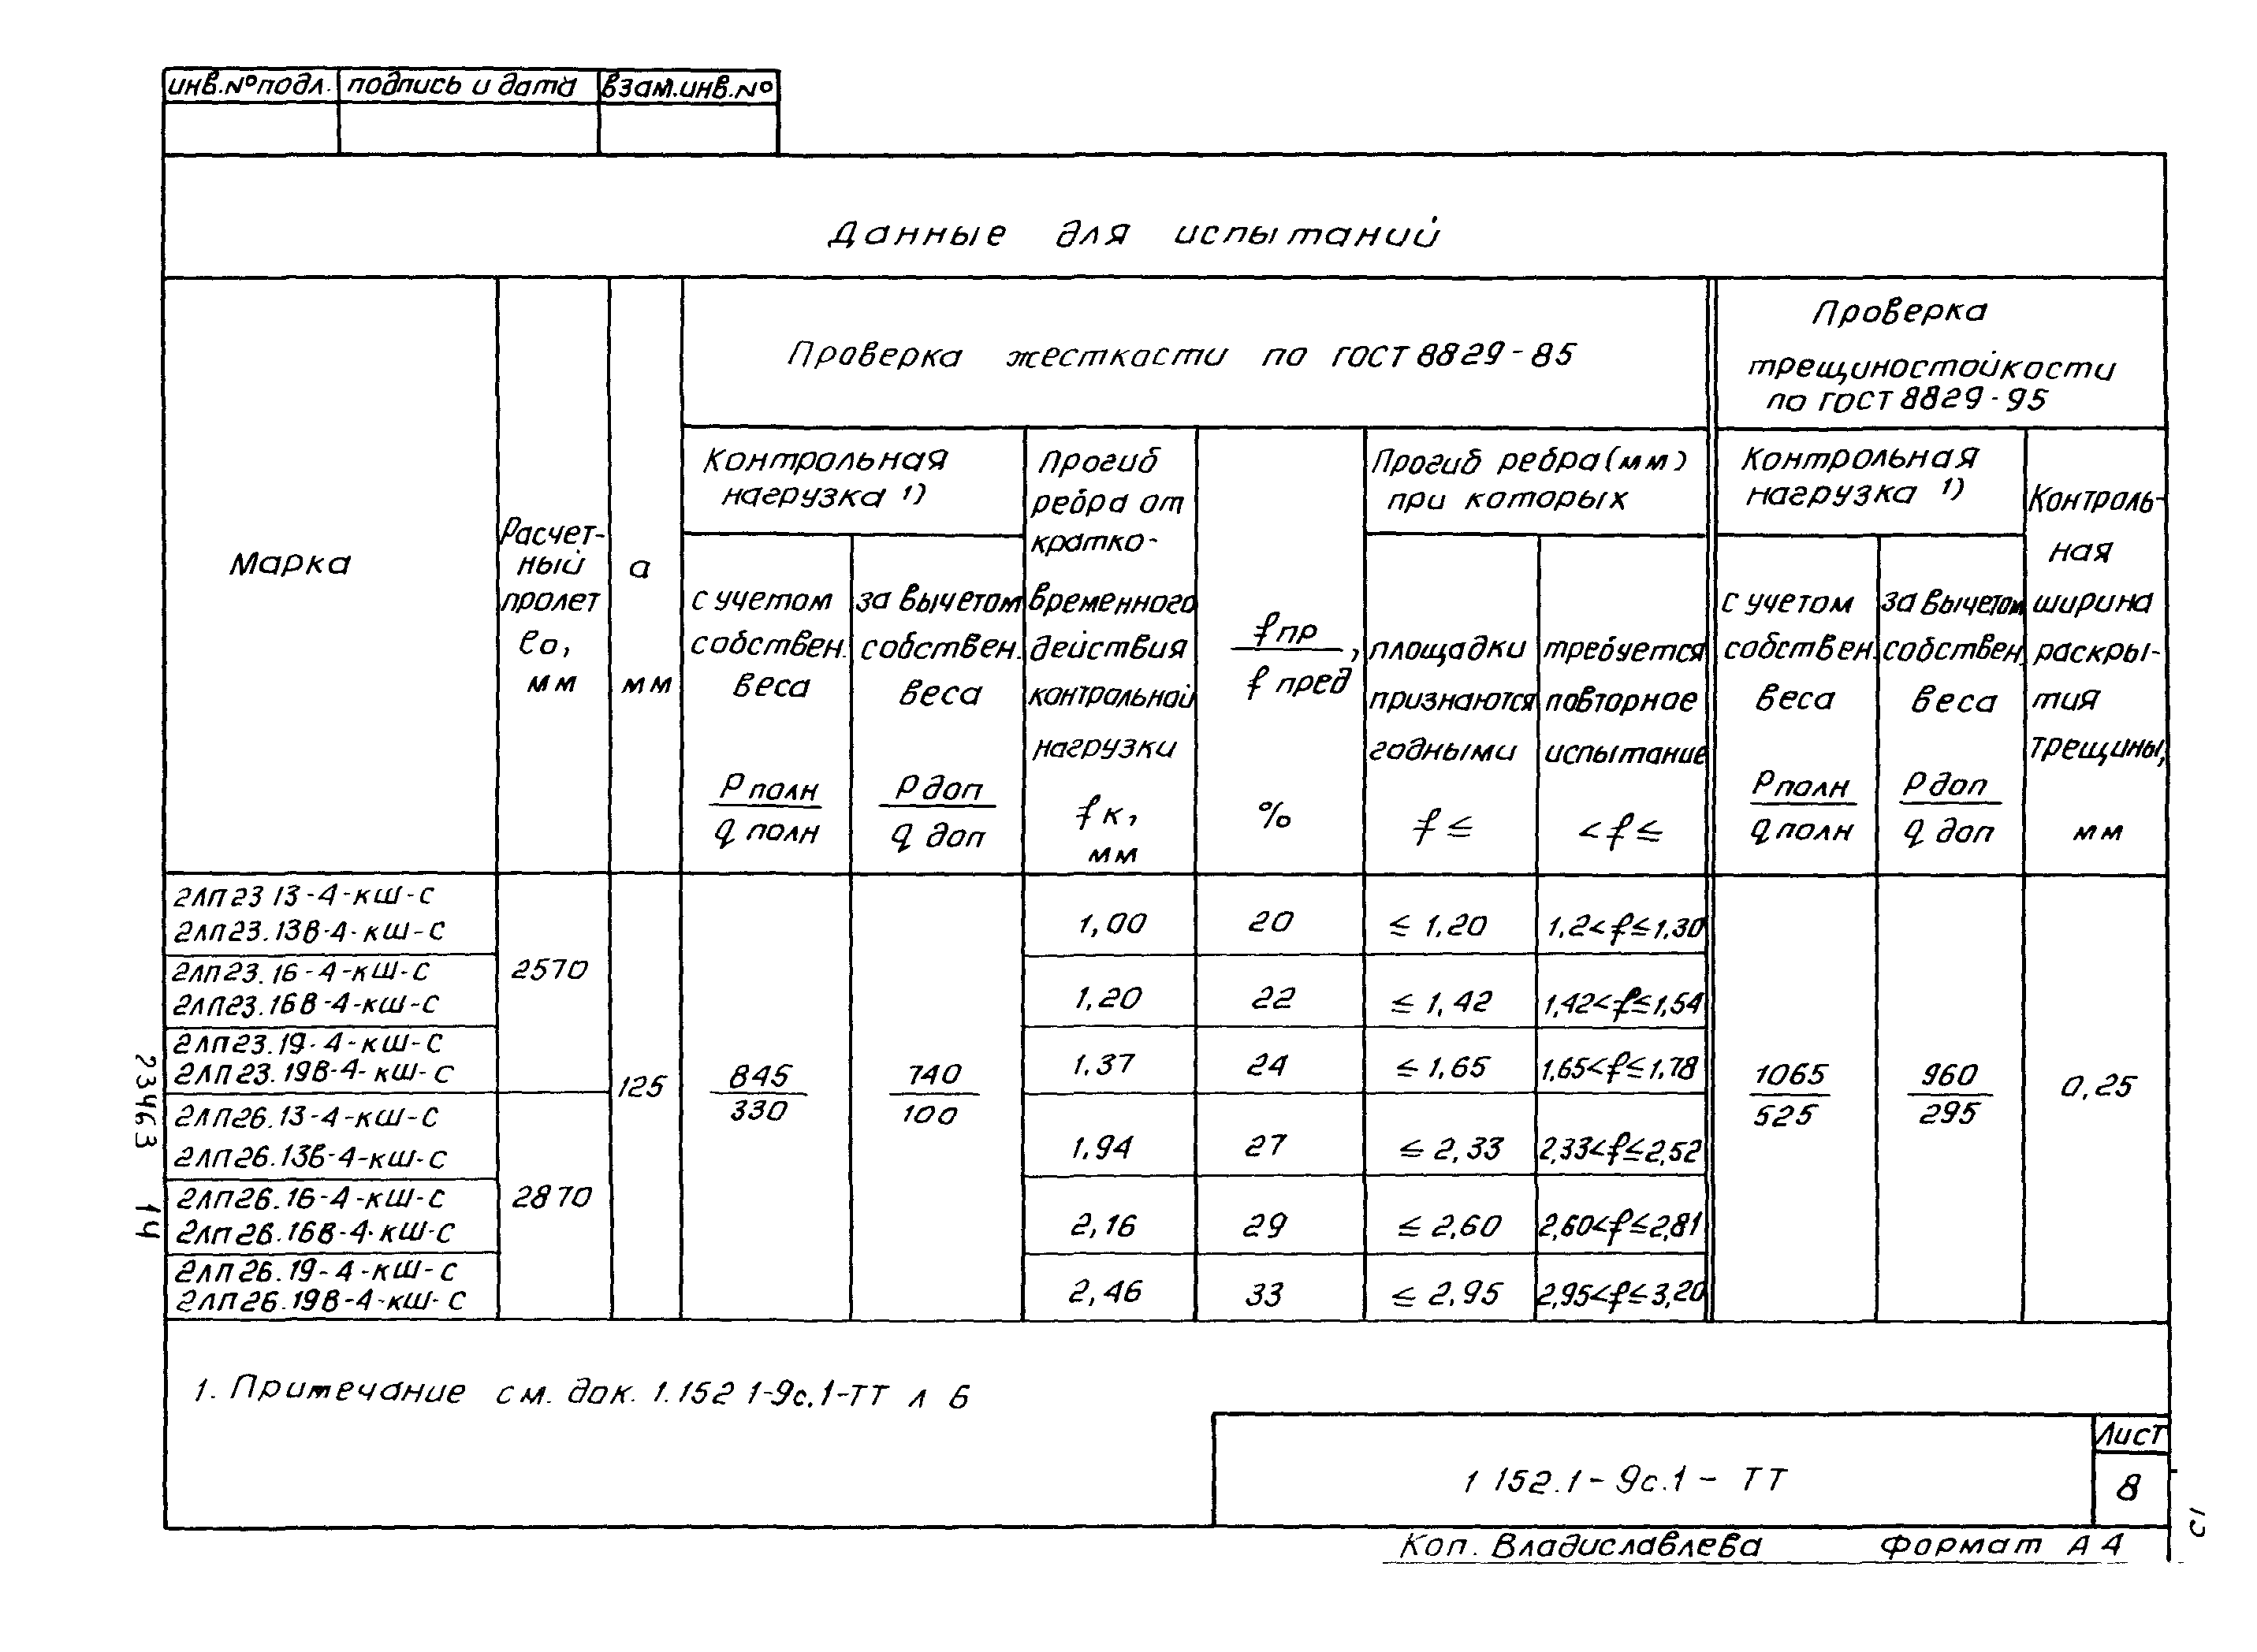 инв.№ подл. подпись и дата взам.инв.№
Данные для испытаний
Марка
Расчет-
ный
пролет
ℓо,
мм
а
мм
Проверка жесткости по ГОСТ 8829-85
Контрольная
нагрузка 1)
с учетом
собствен.
веса
Рполн
qполн
за вычетом
собствен.
веса
Рдоп
q доп
Прогиб
ребра от
кратко-
временного
действия
контрольной
нагрузки
fк,
мм
fпр
f пред,
%
Прогиб ребра (мм)
при которых
площадки
признаются
годными
f ≤
требуется
повторное
испытание
< f ≤
Проверка
трещиностойкости
по ГОСТ 8829-95
Контрольная
нагрузка 1)
с учетом
собствен.
веса
Рполн
qполн
за вычетом
собствен
веса
Рдоп
q доп
Контроль-
ная
ширина
раскры-
тия
трещины,
мм
2ЛП23 13-4-кш-с
2ЛП23.13в-4-кш-с
2ЛП23.16-4-кш-с
2ЛП23.16в-4-кш-с
2ЛП23.19-4-кш-с
2ЛП23.19в-4-кш-с
2ЛП26.13-4-кш-с
2ЛП26.13в-4-кш-с
2ЛП26.16-4-кш-с
2ЛП26.16в-4-кш-с
2ЛП26.19-4-кш-с
2ЛП26.19в-4-кш-с
2570
2870
125
845
330
740
100
1,00 20 ≤ 1,20 1,2<f≤1,30
1,20 22 ≤ 1,42 1,42<f≤1,54
1,37 24 ≤ 1,65 1,65<f≤1,78
1,94 27 ≤ 2,33 2,33<f≤2,52
2,16 29 ≤ 2,60 2,60<f≤2,81
2,46 33 ≤ 2,95 2,95<f≤3,20
1065
525
960
295
0,25
1. Примечание см. док. 1.152 1-9с.1-ТТ л 6
1 152.1-9с.1-ТТ
Лист
8
Коп. Владиславлева Формат А4
23463 14